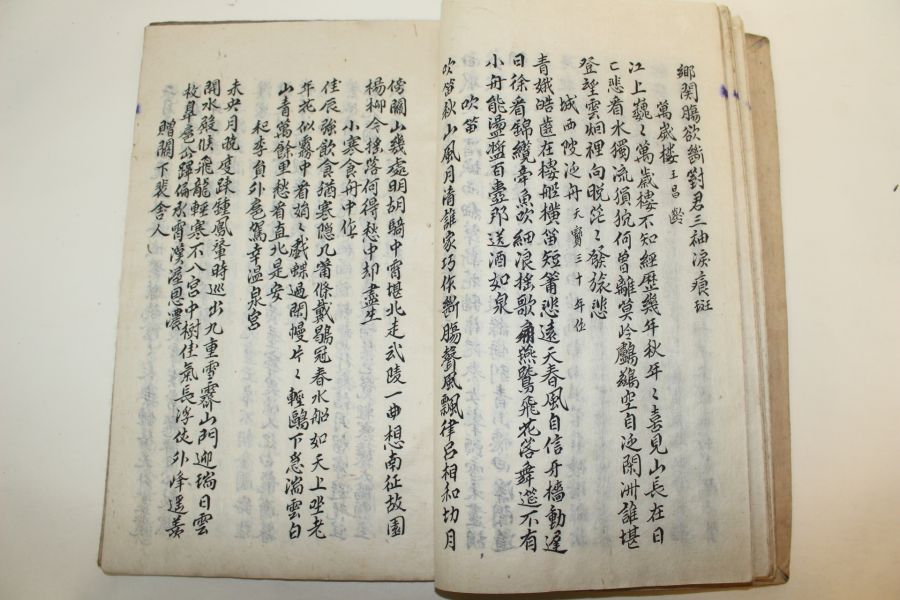 鄉關膓欲斷對君三袖淚痕斑
萬歲樓 王昌齡
江上巍〻萬歲樓不知經歷幾年秋年〻喜見山長在日
〻悲看水獨流猿狖何曽離莫岭鸕鶿空自泛閑洲誰堪
登望雲烟裡向晚茫〻發旅悲
城西陂泛舟 天寳三十年作
青娥皓齒在樓船橫笛短蕭悲遠天春風自信牙檣動遲
日徐看錦纜牽魚吹細浪搖歌扇燕蹴飛花落舞筵不有
小舟能盪槳百壺那送酒如泉
吹笛
吹笛秋山風月清誰家巧作斷膓聲風飄律呂相和切月
傍關山幾處明胡騎中宵堪北走武陵一曲想南征故園
楊柳今搖落何得愁中却盡生
小寒食舟中作
佳辰強飲食猶寒隐几蕭條戴鶡冠春水船如天上坐老
年花似霧中看娟〻戲蝶過閑幔片〻輕鷗下急湍雲白
山青萬餘里愁看直北是安
和李員外扈駕幸温泉宮
未央月曉度踈鍾鳳輦時巡出九重雪霽山門迎瑞日雲
開水殿候飛龍輕寒不入宮中樹佳氣長浮仗外峰遥羡
枚皐扈仝蹕偏承霄漢渥恩濃
贈闕下裴舍人